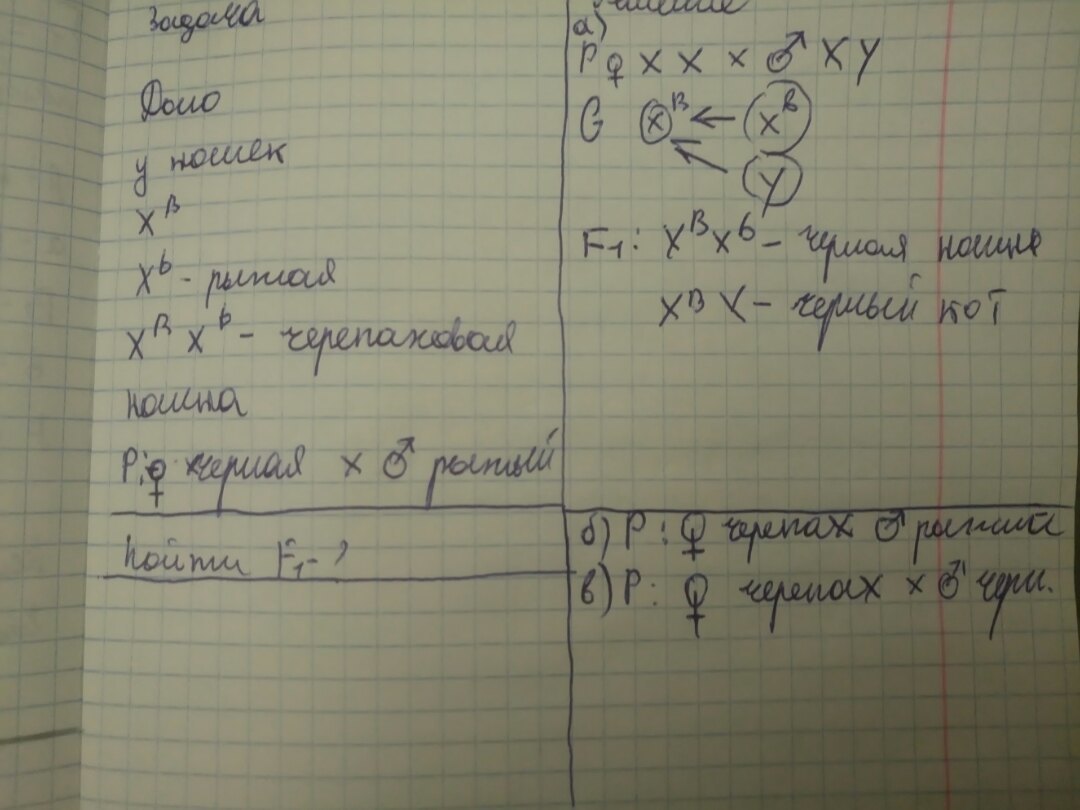 Задача
Дано
у кошек
X^B
X^b - рыжая
X^B X^b - черепаховая
кошка
P: ♀ черная × ♂ рыжий
Найти F₁ - ?
а)
P ♀ X X × ♂ X Y
G X^B ← X^B
Y
F₁: X^B X^b - черная кошка
X^B Y - черный кот
б) P: ♀ черепах ♂ рыжий
в) P: ♀ черепах × ♂ черн.